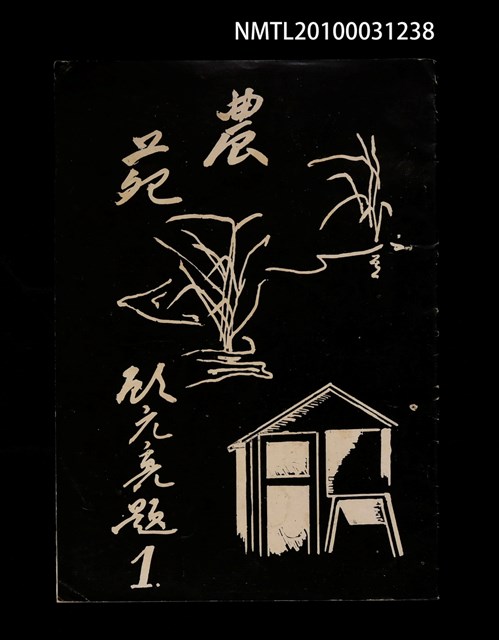 NMTL20100031238
農
苑
顧元亮題
1.